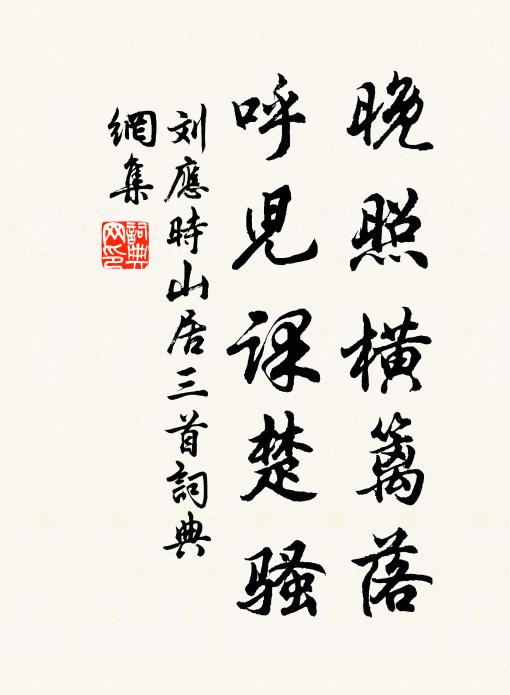 晚照橫籬落
呼兒课楚骚
刘應時山居三首詞典
網集
詞典网印